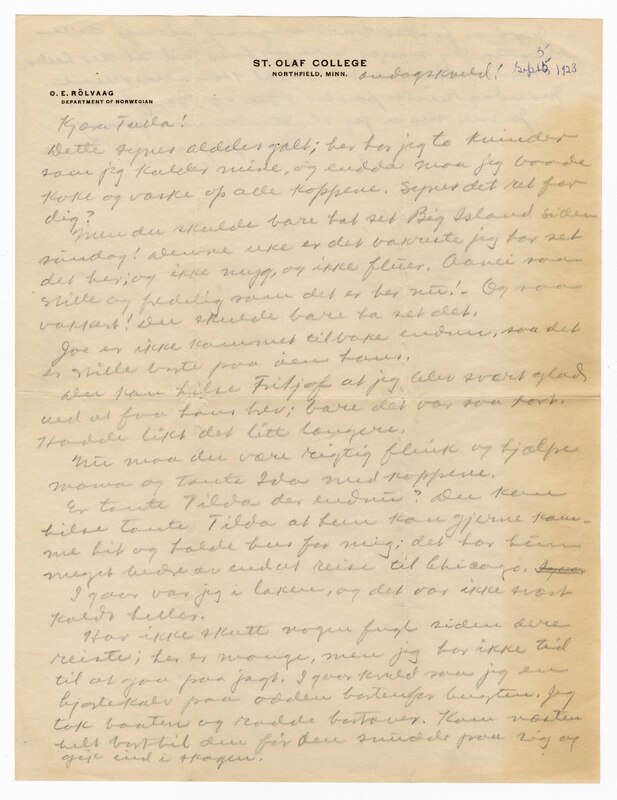 ST. OLAF COLLEGE
NORTHFIELD, MINN.
onsdagskveld! Sept 5, 1923
O. E. RÖLVAAG
DEPARTMENT OF NORWEGIAN
Kjære Tulla!
Dette synes aldeles galt; her har jeg to kvinder
som jeg kalder mine, og endda maa jeg baade
koke og vaske op alle koppene. Synes det ret for
dig?
Men du skulde bare hat set Big Island siden
søndag! Denne uke er det vakreste jeg har set
det her, og ikke mygg, og ikke fluer. Aanei saa
stille og fredelig som det er her nu! - Og saa
vakkert! Du skulde bare ha set det.
Joe er ikke kommet tilbake endnu, saa det
er stille borte paa den kant.
Du kan hilse Fritjof at jeg blev svært glad
ved at faa hans brev; bare det var saa kort.
Hadde likt det litt længere.
Nu maa du være rigtig flink og hjælpe
mama og tante Ida med koppene.
Er tante Tilda der endnu? Du kan
hilse tante Tilda at hun kan gjerne kom-
me hit og holde hus for mig; det har hun
meget bedre av end at reise til Chicago.
I gaar var jeg i laken, og det var ikke svært
koldt heller.
Har ikke skutt nogen fugl siden dere
reiste; her er mange, men jeg har ikke tid
til at gaa paa jagt. I gaar kveld saa jeg en
hjortekalv paa odden bortenfor bugten. Jeg
tok baaten og rodde bortover. Kom næsten
helt bort til den før den snudde paa sig og
gik ind i skogen.